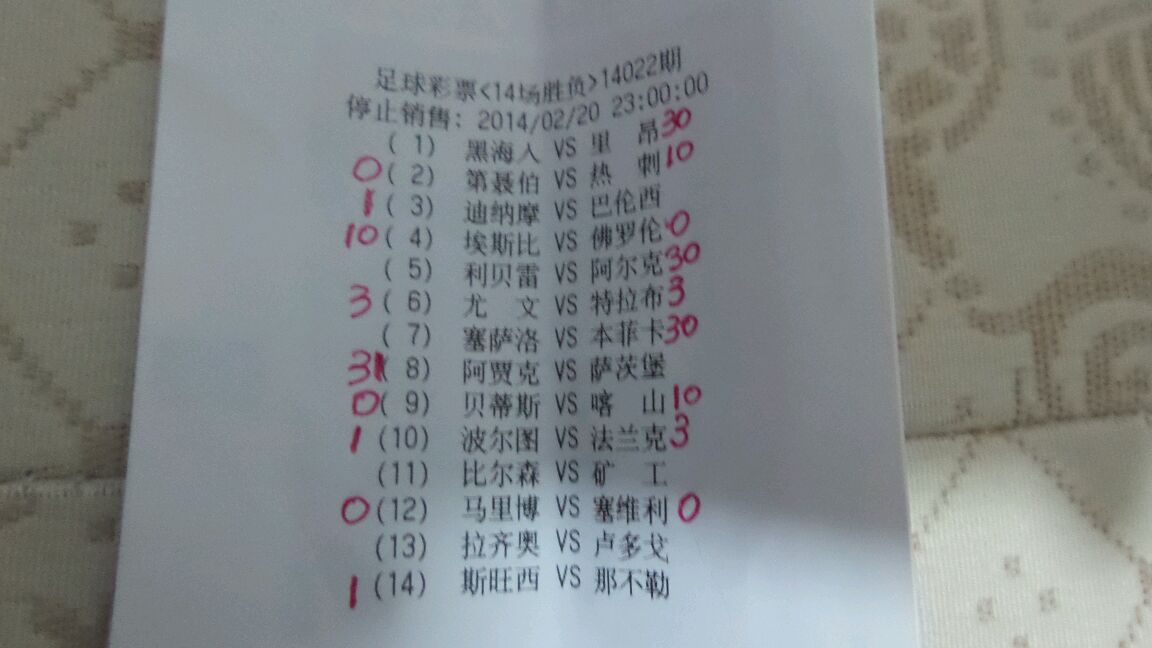 足球彩票<14场胜负>14022期
停止销售: 2014/02/20 23:00:00
(1) 黑海人 VS 里 昂 30
0 (2) 第聂伯 VS 热 刺 10
1 (3) 迪纳摩 VS 巴伦西
10 (4) 埃斯比 VS 佛罗伦 0
(5) 利贝雷 VS 阿尔克 30
3 (6) 尤 文 VS 特拉布 3
(7) 塞萨洛 VS 本菲卡 30
31 (8) 阿贾克 VS 萨茨堡
0 (9) 贝蒂斯 VS 喀 山 10
1 (10) 波尔图 VS 法兰克 3
(11) 比尔森 VS 矿 工
0 (12) 马里博 VS 塞维利 0
(13) 拉齐奥 VS 卢多戈
1 (14) 斯旺西 VS 那不勒